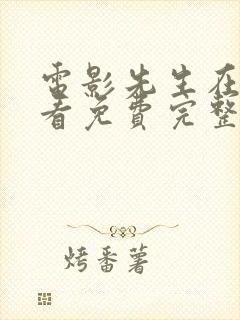 雷影先生在
看免费完整
烤番薯